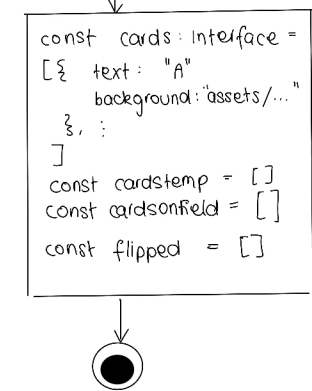 const cards: Interface =
[{ text: "A"
background: "assets/..."
}, :
]
const cardstemp = []
const cardsonfield = []
const flipped = []